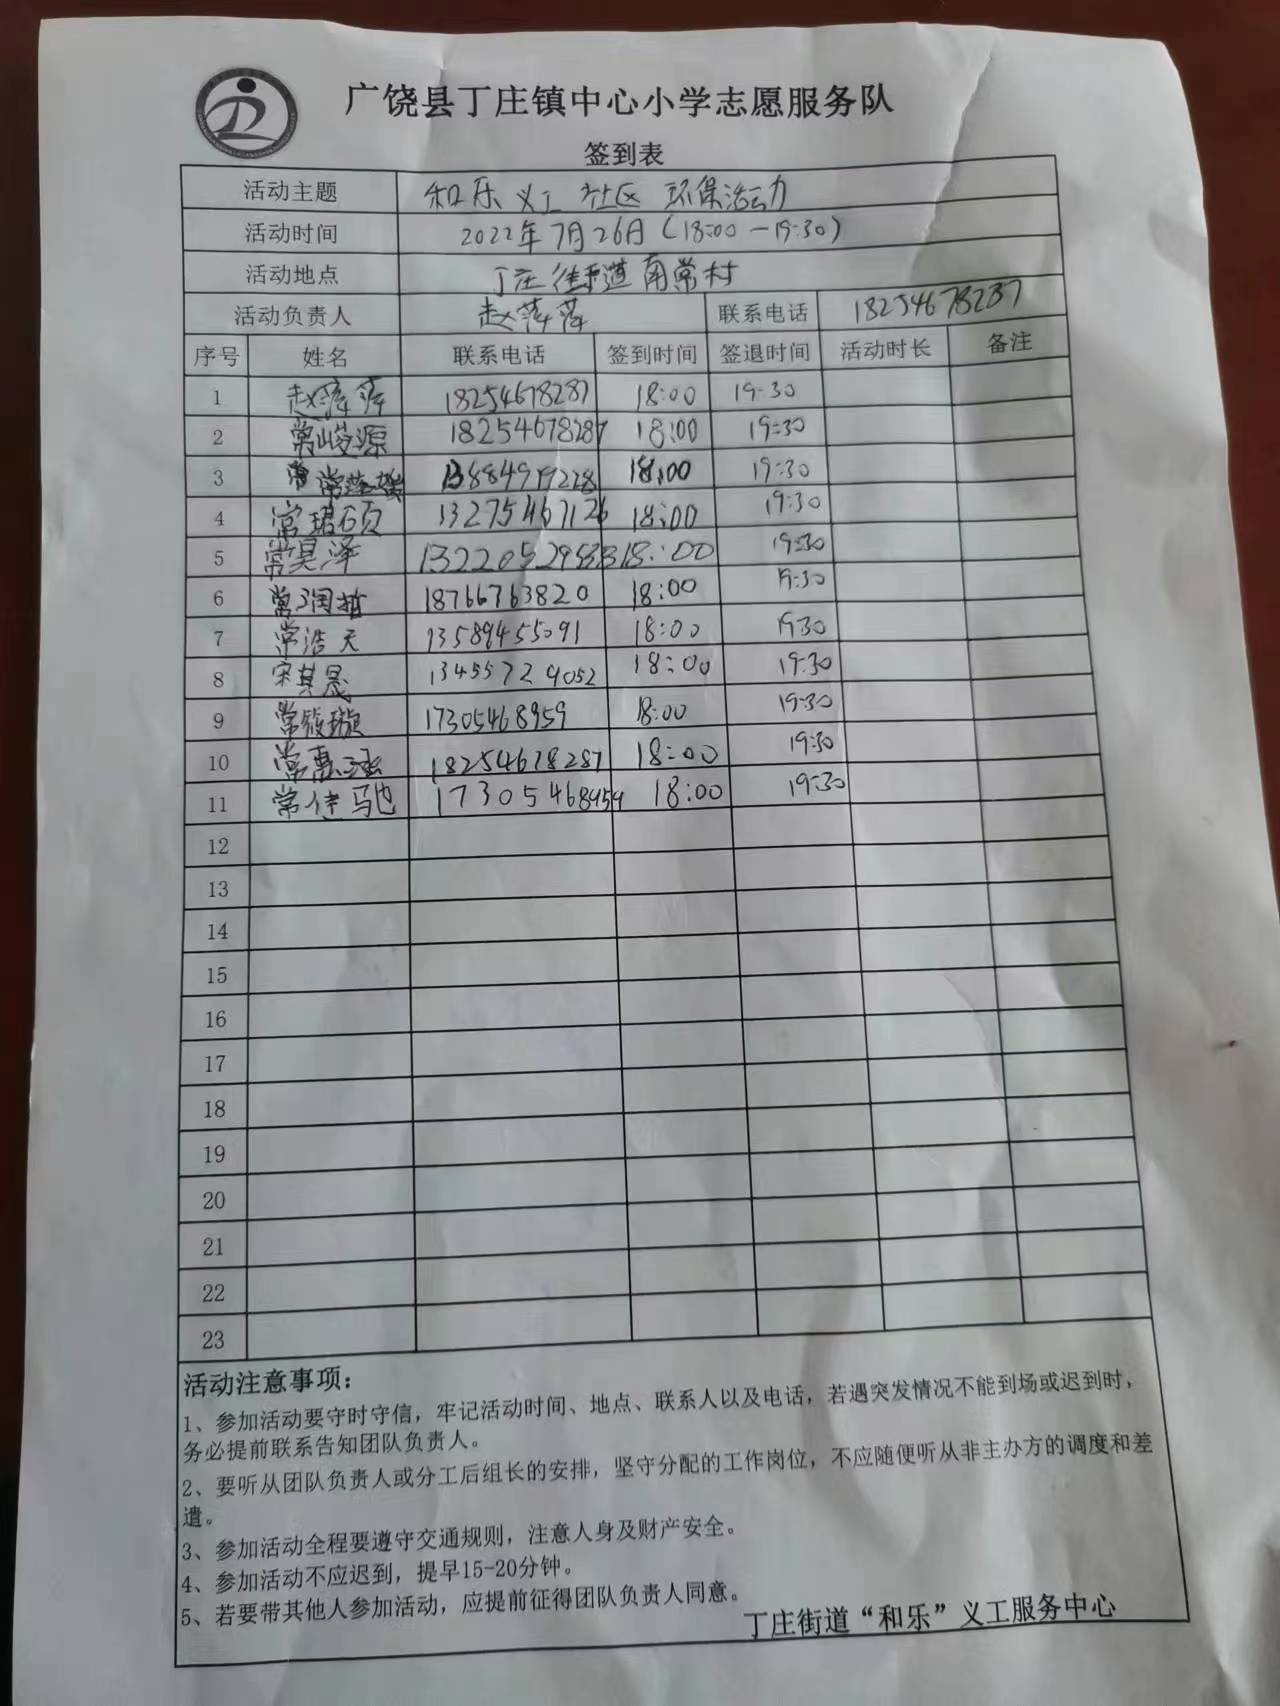 广饶县丁庄镇中心小学志愿服务队
签到表
活动主题 和乐义工 社区 环保活动
活动时间 2022年7月26日(18:00-19:30)
活动地点 丁庄街道南常村
活动负责人 赵萍萍 联系电话 18254678287
序号 姓名 联系电话 签到时间 签退时间 活动时长 备注
1 赵萍萍 18254678287 18:00 19:30
2 常峻源 18254678287 18:00 19:30
3 18:00 19:30
4 常珺硕 13275467126 18:00 19:30
5 常昊泽 18:00 19:30
6 常润哲 18766763820 18:00 19:30
7 常浩天 13589455091 18:00 19:30
8 宋其晟 13455724052 18:00 19:30
9 常筱璇 17305468959 18:00 19:30
10 常惠涵 18254678287 18:00 19:30
11 常佳驰 17305468959 18:00 19:30
12
13
14
15
16
17
18
19
20
21
22
23
活动注意事项:
1、参加活动要守时守信,牢记活动时间、地点、联系人以及电话,若遇突发情况不能到场或迟到时,
务必提前联系告知团队负责人。
2、要听从团队负责人或分工后组长的安排,坚守分配的工作岗位,不应随便听从非主办方的调度和差
遣。
3、参加活动全程要遵守交通规则,注意人身及财产安全。
4、参加活动不应迟到,提早15-20分钟。
5、若要带其他人参加活动,应提前征得团队负责人同意。
丁庄街道“和乐”义工服务中心